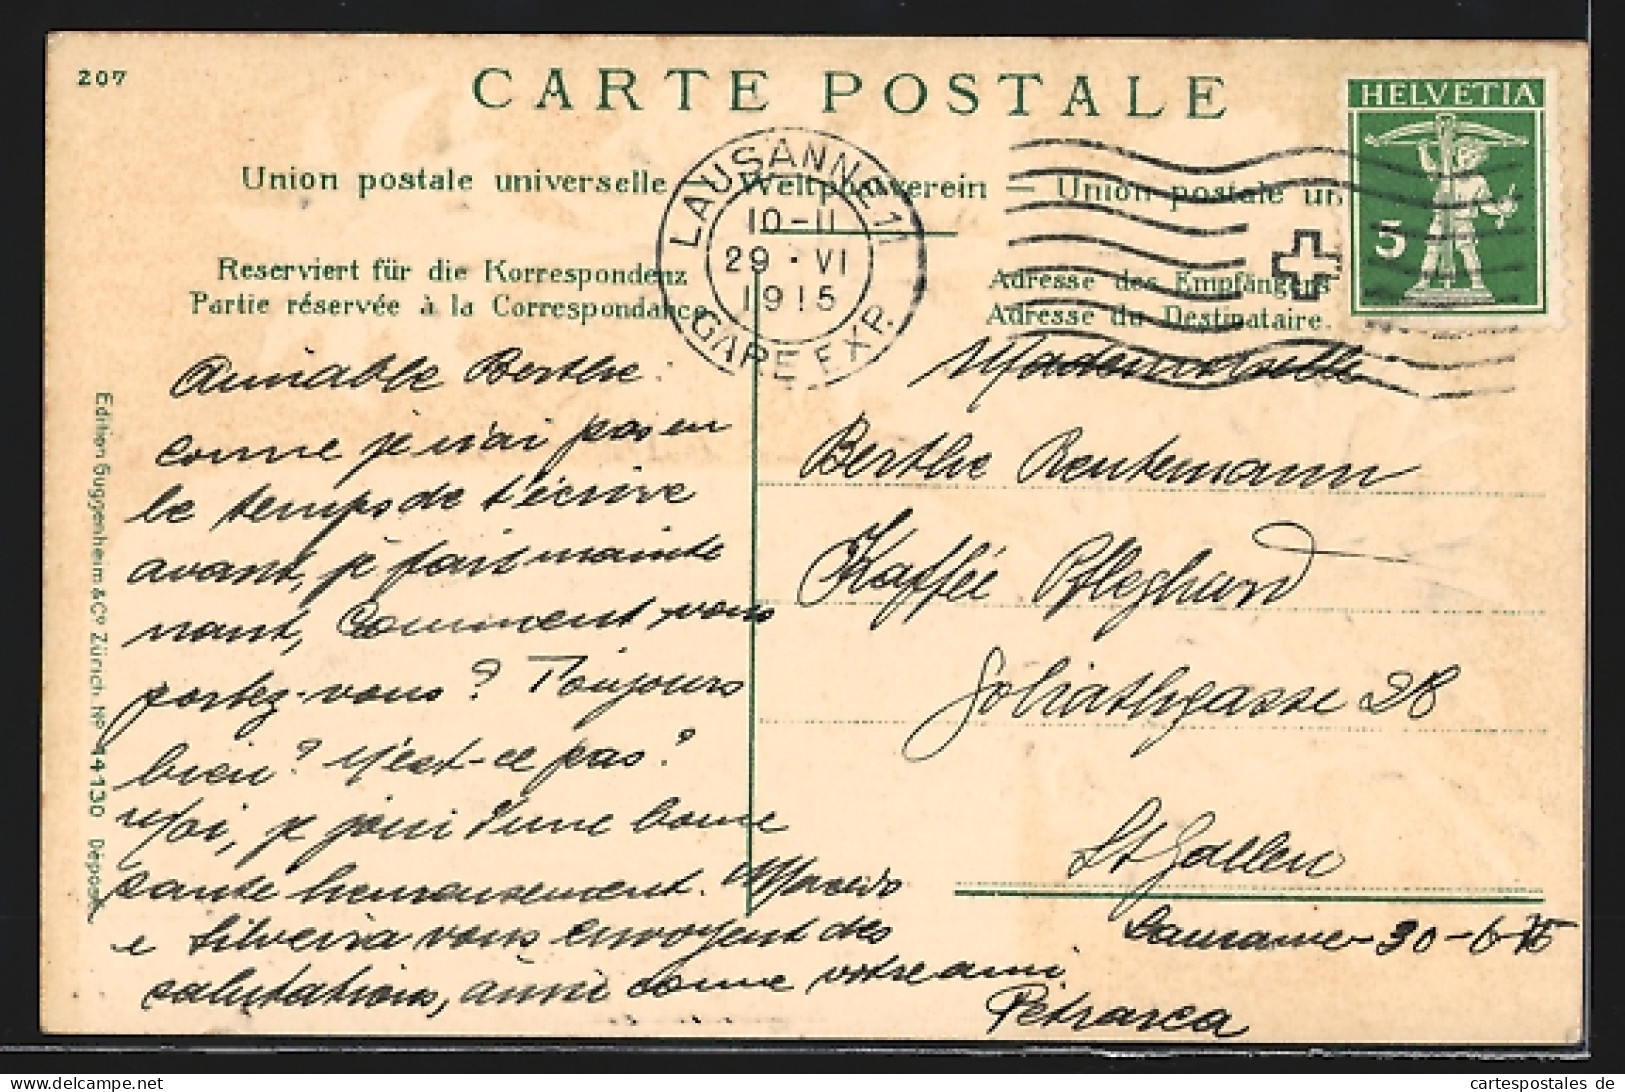 207
CARTE POSTALE
HELVETIA
5
Union postale universelle – Weltpostverein – Union postale un
LAUSANNE 1
10-11
29 · VI
1915
GARE EXP.
Reserviert für die Korrespondenz
Partie réservée à la Correspondance
Adresse des Empfängers
Adresse du Destinataire.
Edition Guggenheim & Co Zürich No 14130 Déposé
Aimable Berthe
comme je n'ai pas eu
le temps de t'écrire
avant, je fait mainte
nant, Comment vous
portez-vous? Toujours
bien? N'est-ce pas?
Moi, je joui d'une bonne
santé heureusement.
e Silveira vous envoyent des
salutations, ainsi comme votre ami
Petrarca
Mademoiselle
Berthe Reutemann
Kaffée Pfleghard
Goliathgasse 28
St Gallen
Lausanne-30-6-15
cartespostales de
www.cartespostales.de